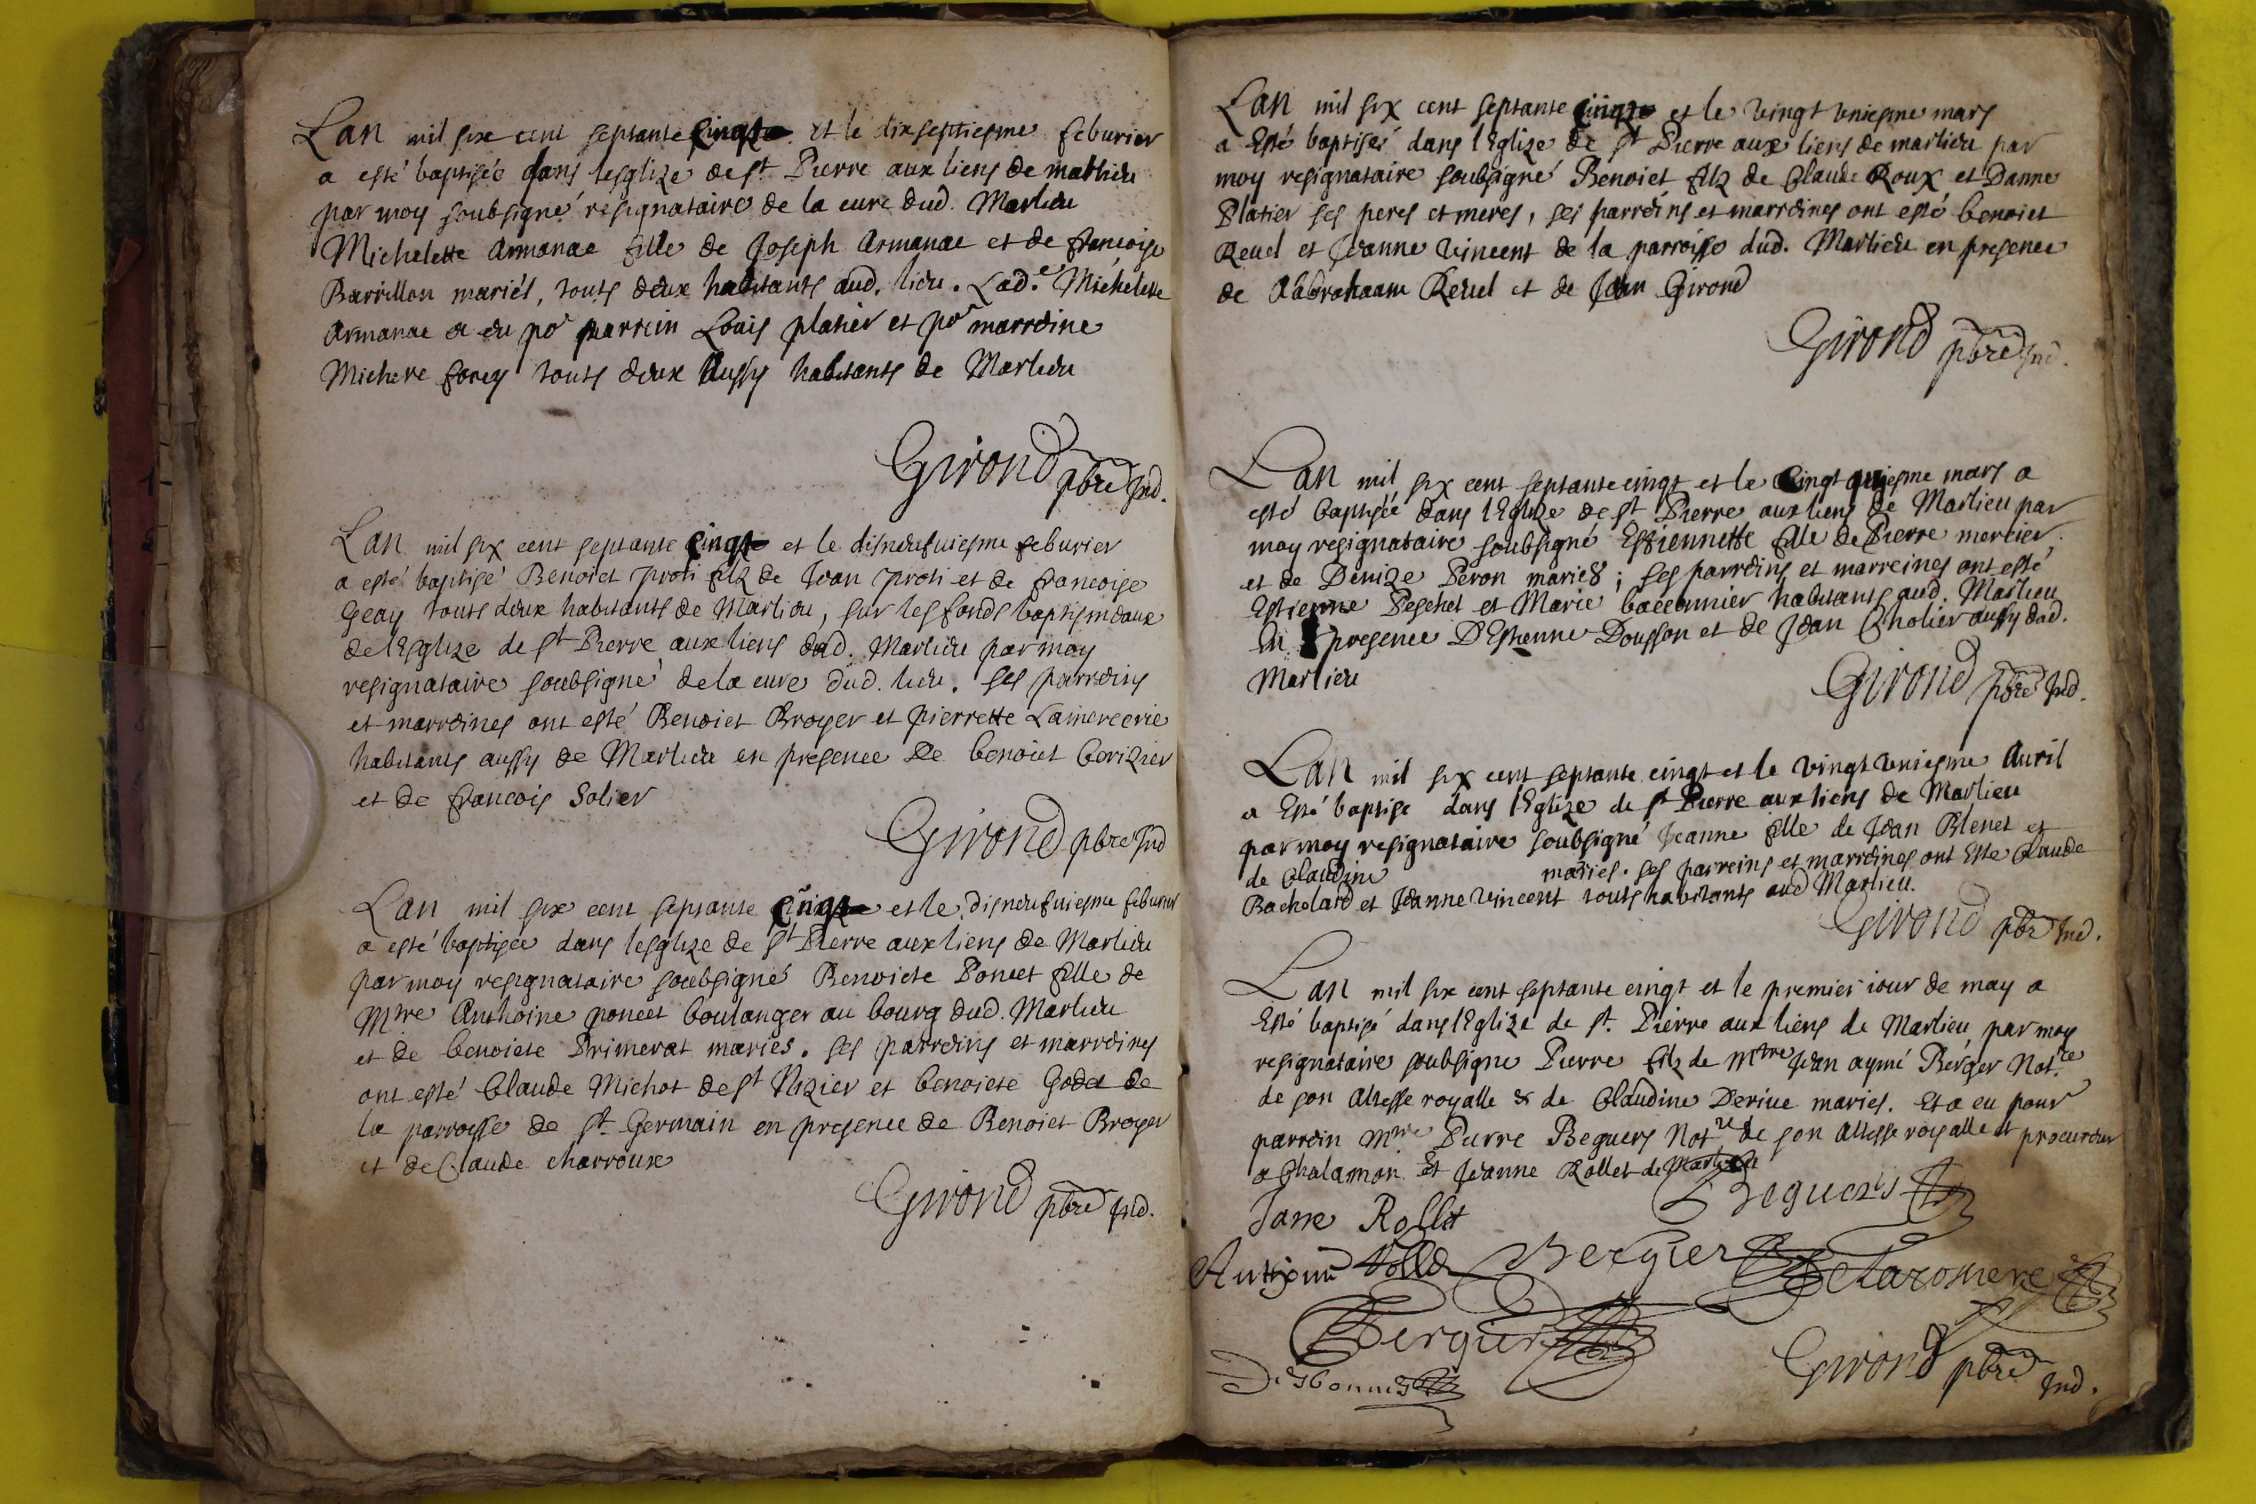 Lan mil six cent septante cingt et le dixseptiesme feburier
a esté baptisée dans lesglize de st Pierre aux liens de marlieu
par moy soubsigné resignataire de la cure dud. Marlieu
Michelette Armanac fille de Joseph Armanac et de francoise
Barrillon mariés, touts deux habitants aud. lieu. Lad.e Michelette
Armanac a eu po.r parrein Louis platier et po.r marreine
Michere forey touts deux Aussy habitants de Marlieu
Girond pbre Ind.
Lan mil six cent septante cingt et le disneufuiesme feburier
a esté baptisé Benoict proti filz de Jean proti et de francoise
Geay touts deux habitants de Marlieu, sur les fonds baptismeaux
de lEsglize de st Pierre aux liens dud. Marlieu par moy
resignataire soubsigné de la cure dud. lieu. ses parreins
et marreines ont esté Benoict Broyer et pierrette Lamercerie
habitants aussy de Marlieu en presence De benoict Cerizier
et de francois Solier
Girond pbre Ind
Lan mil six cent septante cingt et le disneufuiesme feburier
a esté baptisée dans lesglize de st Pierre aux liens de Marlieu
par moy resignataire soubsigné Benoicte Poncet fille de
Mtre Anthoine poncet boulanger au bourg dud. Marlieu
et de benoicte Primerat mariés. ses parreins et marreines
ont esté Claude Michot de st Nizier et benoicte Godet de
la parroisse de st Germain en presence de Benoict Broyer
et de Claude charroux
Girond pbre Ind.
Lan mil six cent septante cingt et le vingt uniesme mars
a Esté baptisé dans lEglize de st Pierre aux liens de marlieu par
moy resignataire soubsigné Benoict filz de Claude Roux et Danne
Platier ses peres et meres, ses parreins et marreines ont esté benoict
Reuel et Jeanne vincent de la parroisse dud. Marlieu en presence
de Aabrahaam Reuel et de Jean Girond
Girond pbre Ind.
Lan mil six cent septante cingt et le vingt uniesme mars a
esté baptisée dans lEglize de st Pierre aux liens de Marlieu par
moy resignataire soubsigné Estiennette fille de Pierre mercier
et de Denize Peron mariés; ses parreins et marreines ont esté
Estienne Peschet et Marie baconnier habitants aud. Marlieu
En presence D'Estienne Dousson et de Jean Cholier aussy dud.
Marlieu
Girond pbre Ind.
Lan mil six cent septante cingt et le vingt uniesme Auril
a Esté baptise dans lEglize de st Pierre aux liens de Marlieu
par moy resignataire soubsigné Jeanne fille de Jean Blenet et
de Claudine mariés. ses parreins et marreines ont Esté Claude
Bachelard et Jeanne vincent touts habitants aud Marlieu.
Girond pbre Ind.
Lan mil six cent septante cingt et le premier iour de may a
Esté baptisé dans lEglize de st. Pierre aux liens de Marlieu par moy
resignataire soubsigne Pierre filz de Mtre Jean aymé Berger Not.re
de son Altesse royalle & de Claudine Deriue mariés. Et a eu pour
parrein Mtre Pierre Beguers Not.re de son Altesse royalle et procureur
a Chalamon Et Jeanne Rollet de Marlieu
Beguers
Jane Rollet
Bergier
Delarosiere
Bergier
Girond pbre Ind.